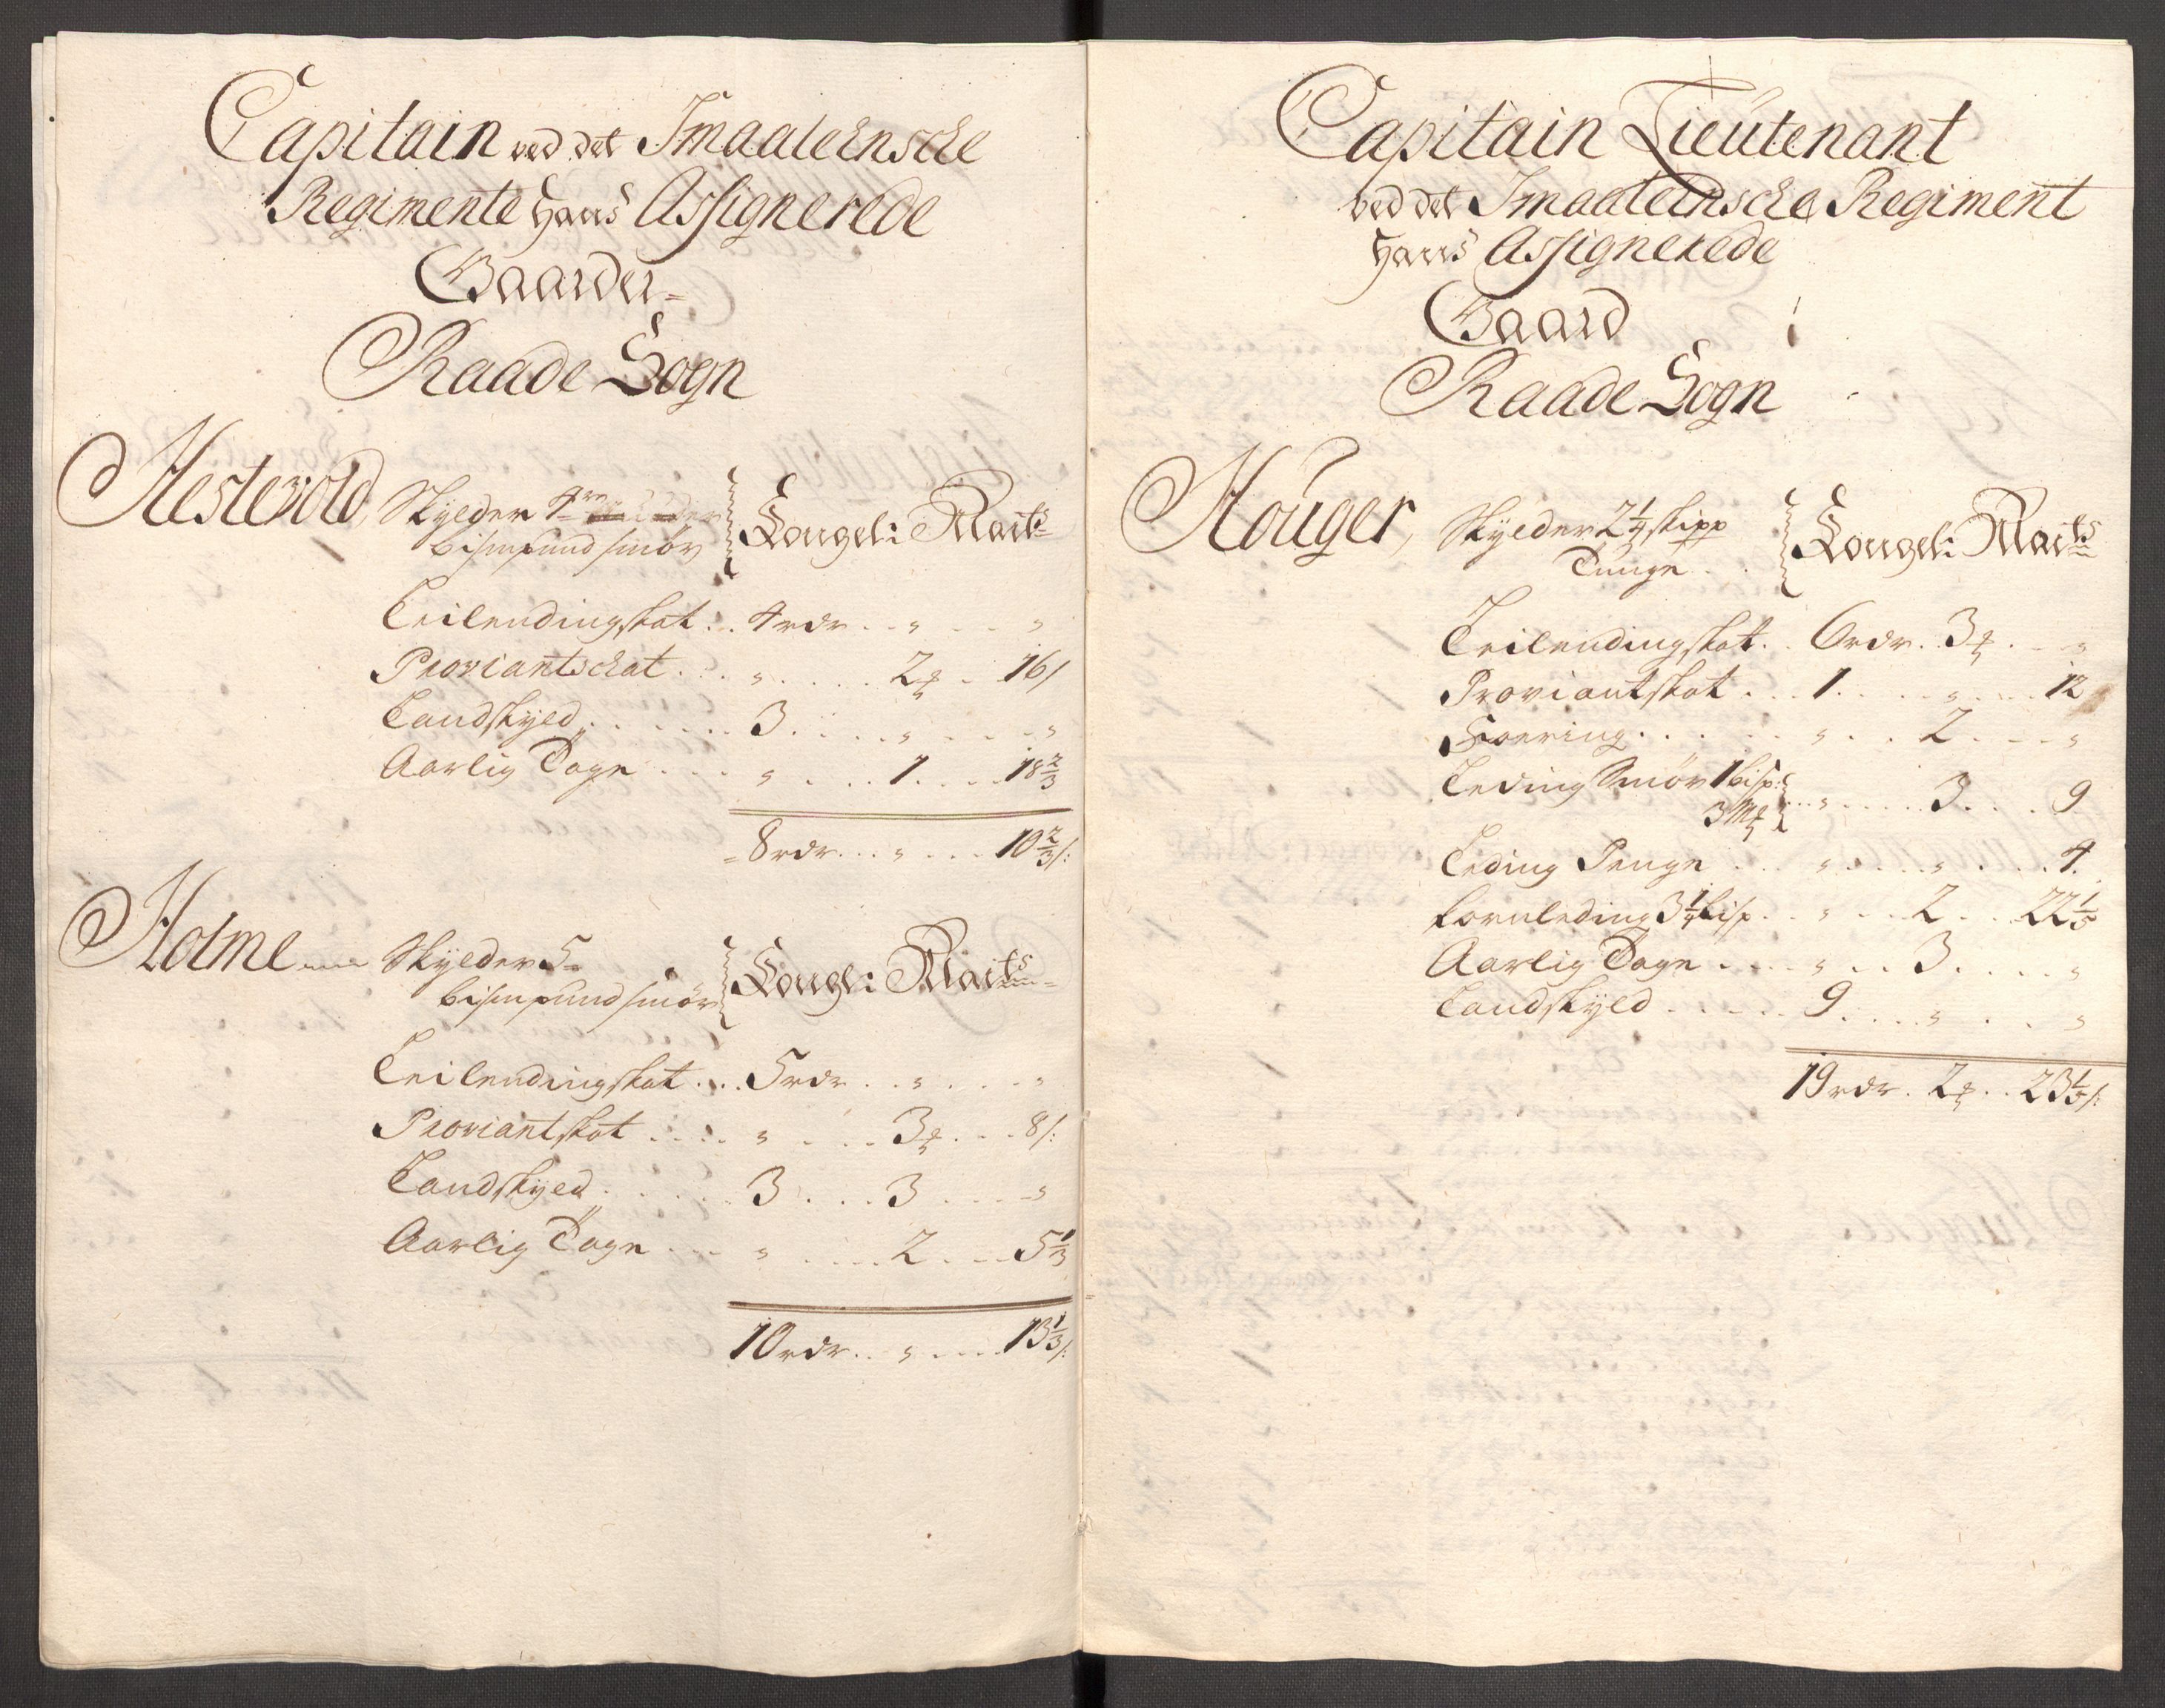 Capitain ved det Smaalehnsche
Regimente hans Assignerede
Gaarder-
Raade Sogn
Hestevold, Skylder 4re
bismpund smør Kongel: Maits
Leilendingskat . . 4 rdr . . " . . . "
Proviantschat . . . " . . . . 2 ₰ . . 16 /
Landskyld . . . . . 3 . . . . " . . . . "
Aarlig Tage . . . " . . . . 1 . . . 18 2/3
8 rdr . . . " . . . 10 2/3 /:
Holme Skylder 5
bismpund smør Kongl: Maits
Leilendingskat . . . 5 rdr . . " . . . "
Proviantskat . . . . " . . . 3 ₰ . . . 8 /:
Landskyld . . . . . 3 . . . 3 . . . . "
Aarlig Tage . . . " . . . . 2 . . . 5 1/3
10 rdr . . " . . . . 13 1/3 /:
Capitain Lieutenant
ved det Smaalehnsche Regiment
hans Assignerede
Gaard
Raade Sogn
Houger, Skylder 2 1/4 skipp
Tunge . . Kongel: Maits
Leilendingskat . . 6 rdr . 3 ₰ . . "
Proviantskat . . . 1 . . . . " . . . 12
Foering . . . . . . " . . . 2 . . . "
Leding Smør 1 bisp:
3 M₰ . . . " . . . . . 3 . . . 9
Leding Penge . . . " . . . . " . . . 4
Kornleding 3 1/4 Lisp . . " . . . 2 . . 22 1/5
Aarlig Tage . . . . " . . 3 . . . . "
Landskyld . . . . . 9 . . . . " . . . "
19 rdr . 2 ₰ . . 23 1/5 /: